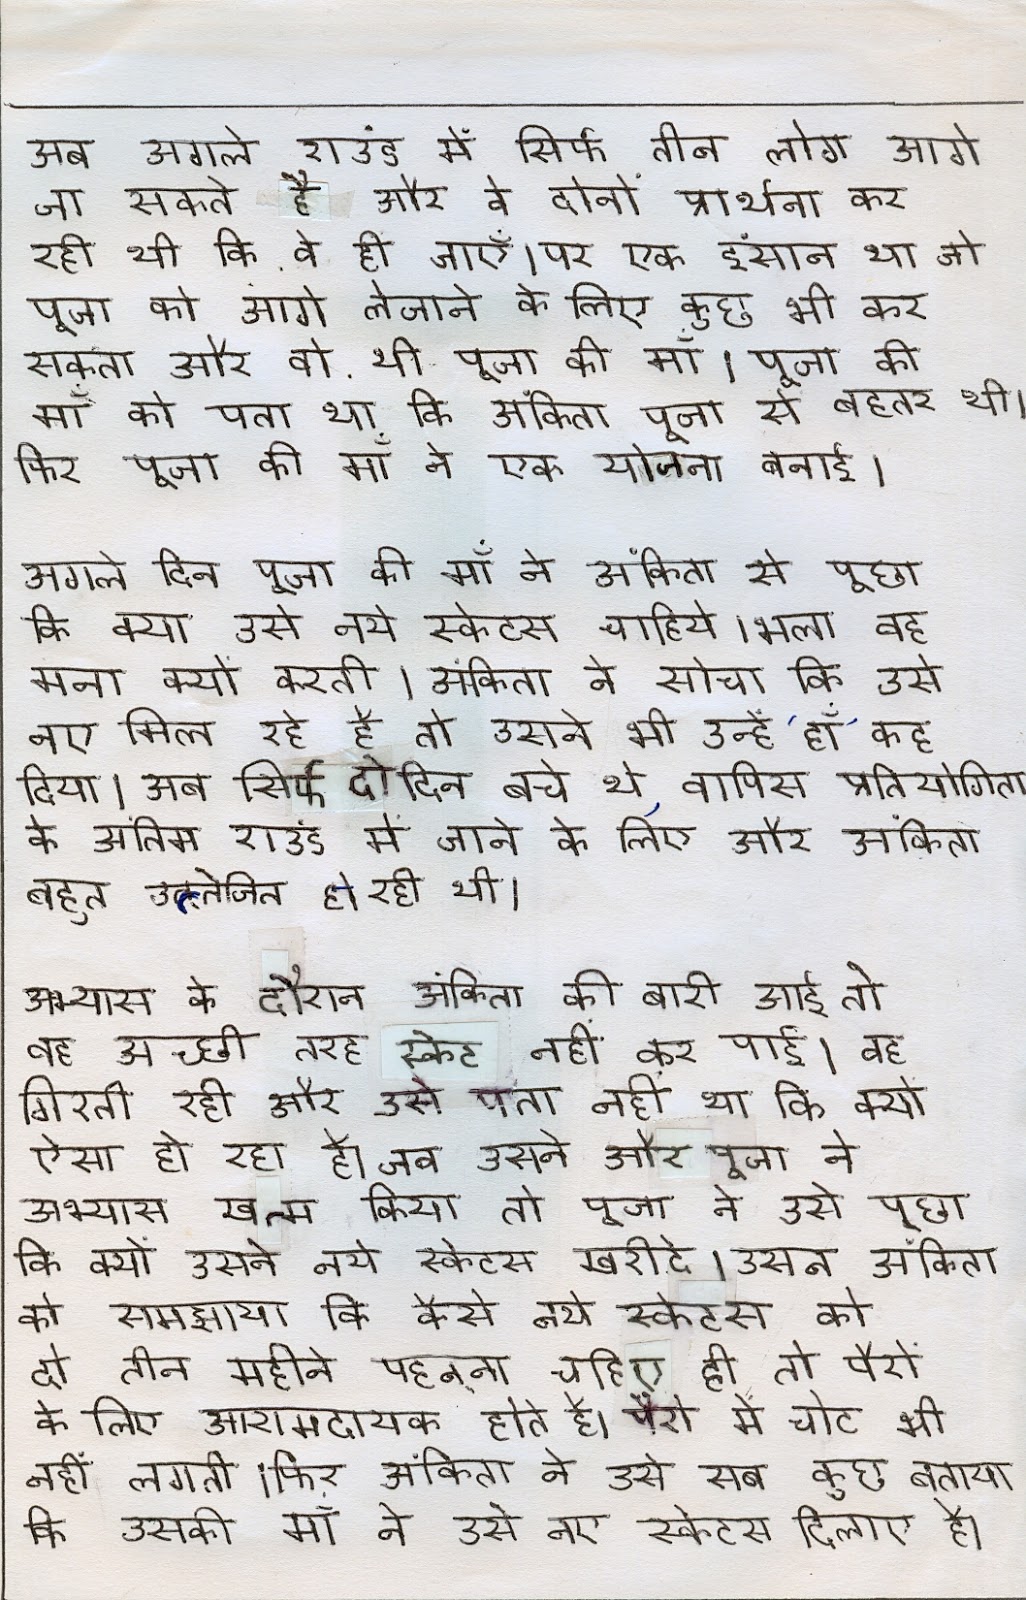 अब अगले राउंड में सिर्फ तीन लोग आगे
जा सकते है और वे दोनों प्रार्थना कर
रही थी कि वे ही जाएँ। पर एक इंसान था जो
पूजा को आगे लेजाने के लिए कुछ भी कर
सकता और वो थी पूजा की माँ। पूजा की
माँ को पता था कि अंकिता पूजा से बहतर थी।
फिर पूजा की माँ ने एक योजना बनाई।

अगले दिन पूजा की माँ ने अंकिता से पूछा
कि क्या उसे नये स्केटस चाहिये। भला वह
मना क्यों करती। अंकिता ने सोचा कि उसे
नए मिल रहे है तो उसने भी उन्हें 'हाँ' कह
दिया। अब सिर्फ दो दिन बचे थे, वापिस प्रतियोगिता
के अंतिम राउंड में जाने के लिए और अंकिता
बहुत उत्तेजित हो रही थी।

अभ्यास के दौरान अंकिता की बारी आई तो
वह अच्छी तरह स्केट नहीं कर पाई। वह
गिरती रही और उसे पता नहीं था कि क्यों
ऐसा हो रहा है। जब उसने और पूजा ने
अभ्यास खत्म किया तो पूजा ने उसे पूछा
कि क्यों उसने नये स्केटस खरीदे। उसन अंकिता
को समझाया कि कैसे नये स्केटस को
दो तीन महीने पहनना चहिए ही तो पैरों
के लिए आरामदायक होते है। पैरो में चोट भी
नहीं लगती। फिर अंकिता ने उसे सब कुछ बताया
कि उसकी माँ ने उसे नए स्केटस दिलाए है।